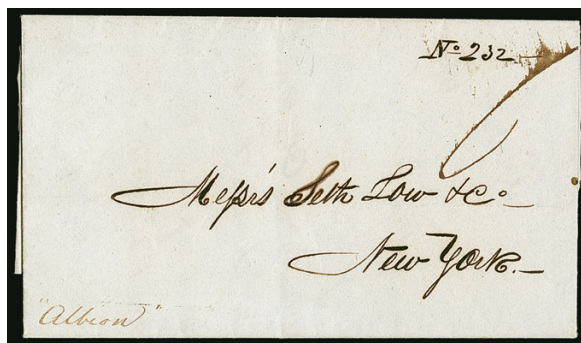 No 232
Messrs Seth Low & Co
New York.
"Albion"